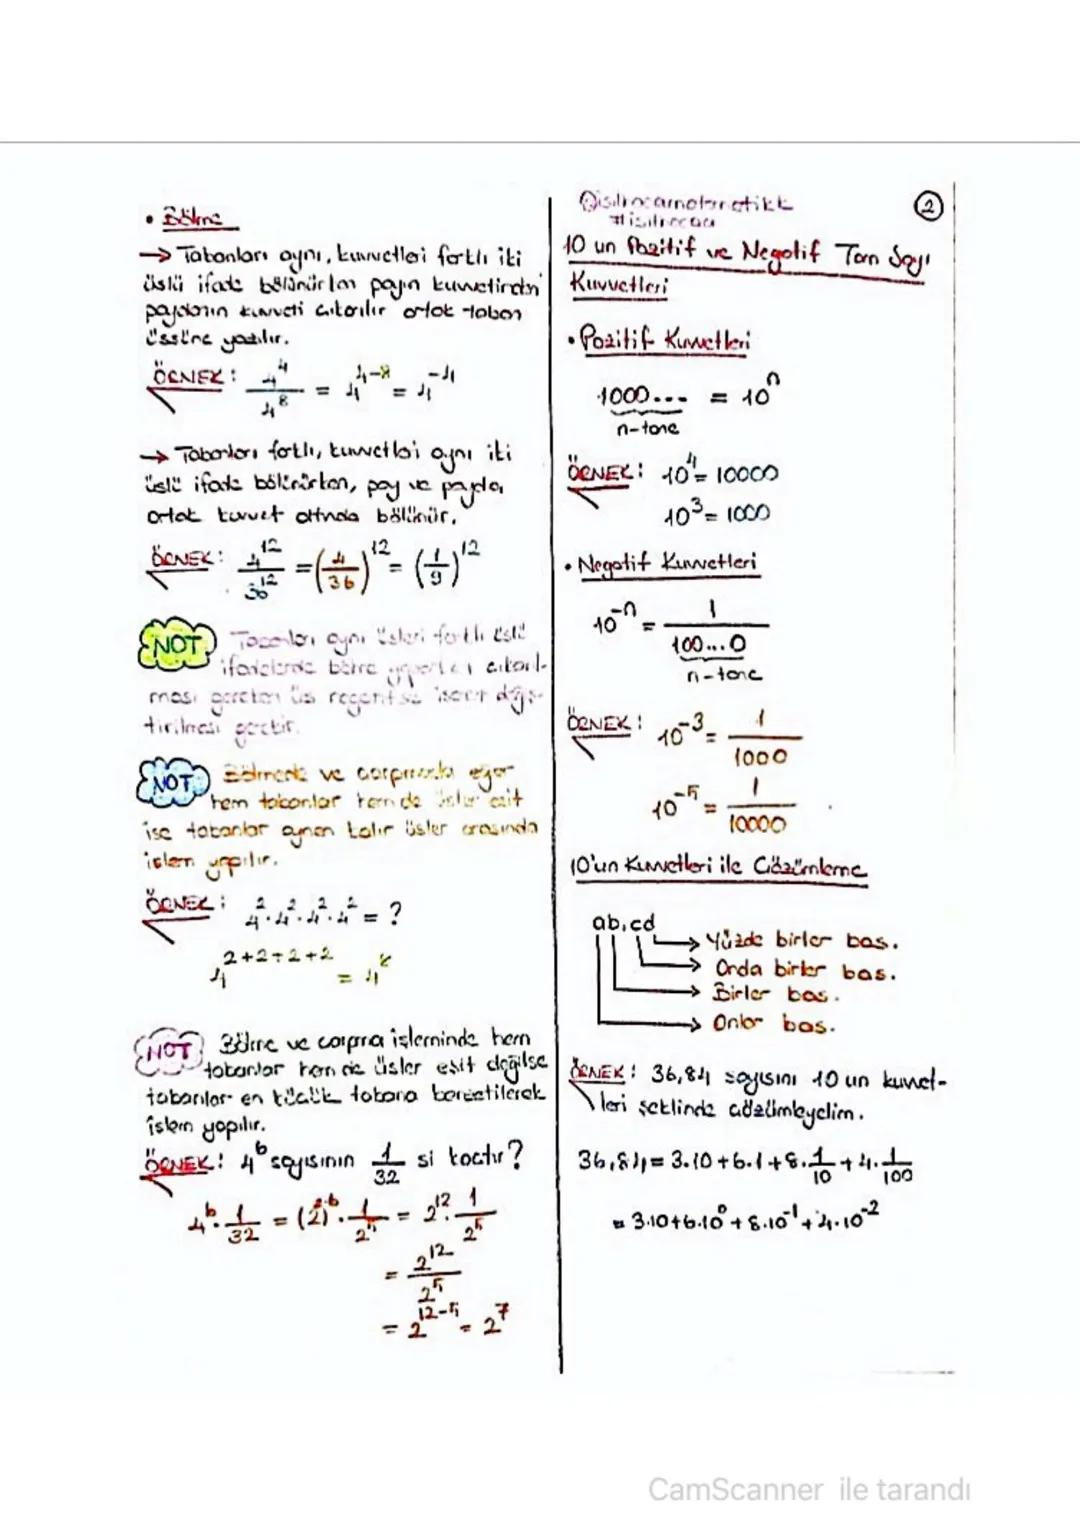 • Bölme
→ Tabanları aynı, kuvvetleri farklı iki
üslü ifade bölünürken payın kuvvetinden
paydanın kuvveti çıkarılır ortak taban
üssüne yazılır.
ÖRNEK: 4⁴/4⁸ = 4⁴⁻⁸ = 4⁻⁴
→ Tabanları farklı, kuvvetleri aynı iki
üslü ifade bölünürken, pay ve payda,
ortak kuvvet altında bölünür.
ÖRNEK: 4¹²/36¹² = (4/36)¹² = (1/9)¹²
NOT Tabanları aynı üsleri farklı üslü
ifadelerde bölme yaparken çıkarıl-
ması gereken üs negatifse işaret değiş-
tirilmesi gerekir.
NOT Bölmede ve çarpmada eğer
hem tabanlar hem de üsler eşit
ise tabanlar aynen kalır üsler arasında
işlem yapılır.
ÖRNEK: 4².4².4².4² = ?
4²⁺²⁺²⁺² = 4⁸
NOT Bölme ve çarpma işleminde hem
tabanlar hem de üsler eşit değilse
tabanlar en küçük tabana benzetilerek
işlem yapılır.
ÖRNEK: 4⁶ sayısının 1/32 si kaçtır?
4⁶.1/32 = (2²)⁶.1/2⁵ = 2¹².1/2⁵
= 2¹²/2⁵
= 2¹²⁻⁵ = 2⁷
2
10 un Pozitif ve Negatif Tam Sayı
Kuvvetleri
• Pozitif Kuvvetleri
1000... = 10ⁿ
n-tane
ÖRNEK: 10⁴ = 10000
10³ = 1000
• Negatif Kuvvetleri
10⁻ⁿ = 1/100...0
n-tane
ÖRNEK: 10⁻³ = 1/1000
10⁻⁵ = 1/10000
10'un Kuvvetleri ile Çözümleme
ab,cd
→ Yüzde birler bas.
→ Onda birler bas.
→ Birler bas.
→ Onlar bas.
ÖRNEK: 36,84 sayısını 10 un kuvvet-
leri şeklinde çözümleyelim.
36,84 = 3.10+6.1+8.1/10+4.1/100
= 3.10+6.10⁰+8.10⁻¹+4.10⁻²
CamScanner ile tarandı